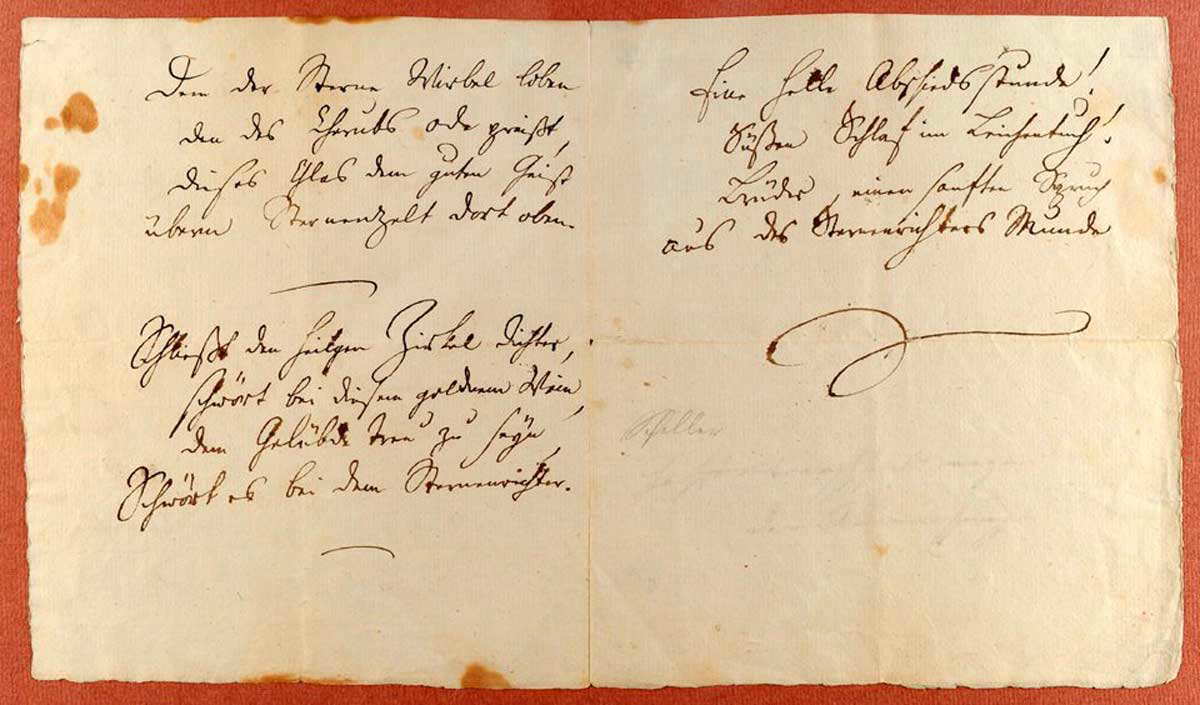 Dem der Sterne Wirbel loben
den des Cherubs ode preißt,
dieses Glas dem guten Geist
übern Sternenzelt dort oben.
Schließt den heilgen Zirkel dichter,
schwört bei diesem goldnem Wein
dem Gelübde treu zu seyn,
Schwört es bei dem Sternenrichter.
Eine helle Abschiedsstunde!
Süßen Schlaf im Leichentuch!
Brüder, einen sanften Spruch
aus des Sternenrichters Munde
Schiller